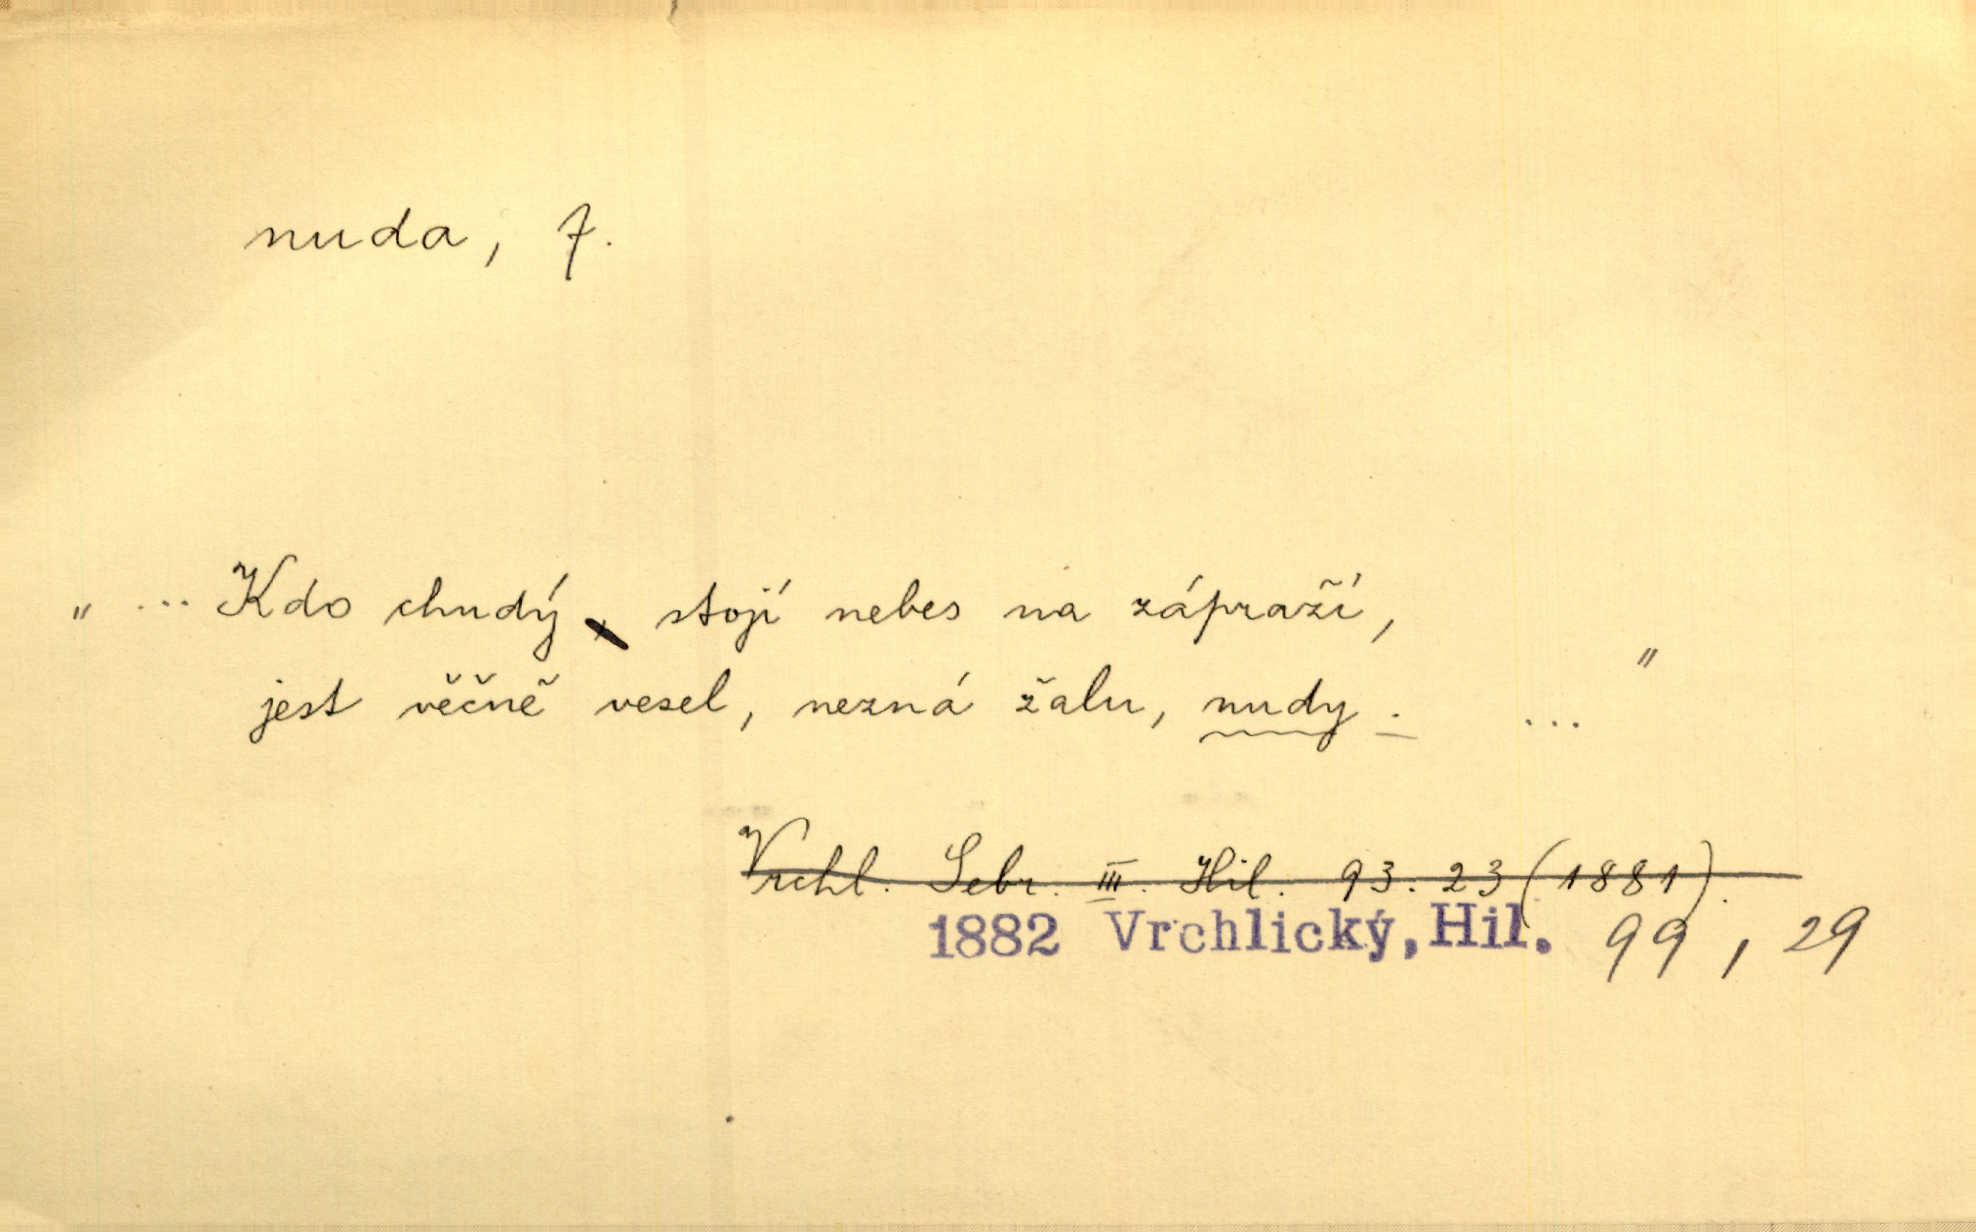 nuda, f.
„ ... Kdo chudý, stojí nebes na zápraží,
jest věčně vesel, nezná žalu, nudy. ... "
Vrchl. Sebr. III. Hil. 93. 23 (1881).
1882 Vrchlický, Hil. 99, 29